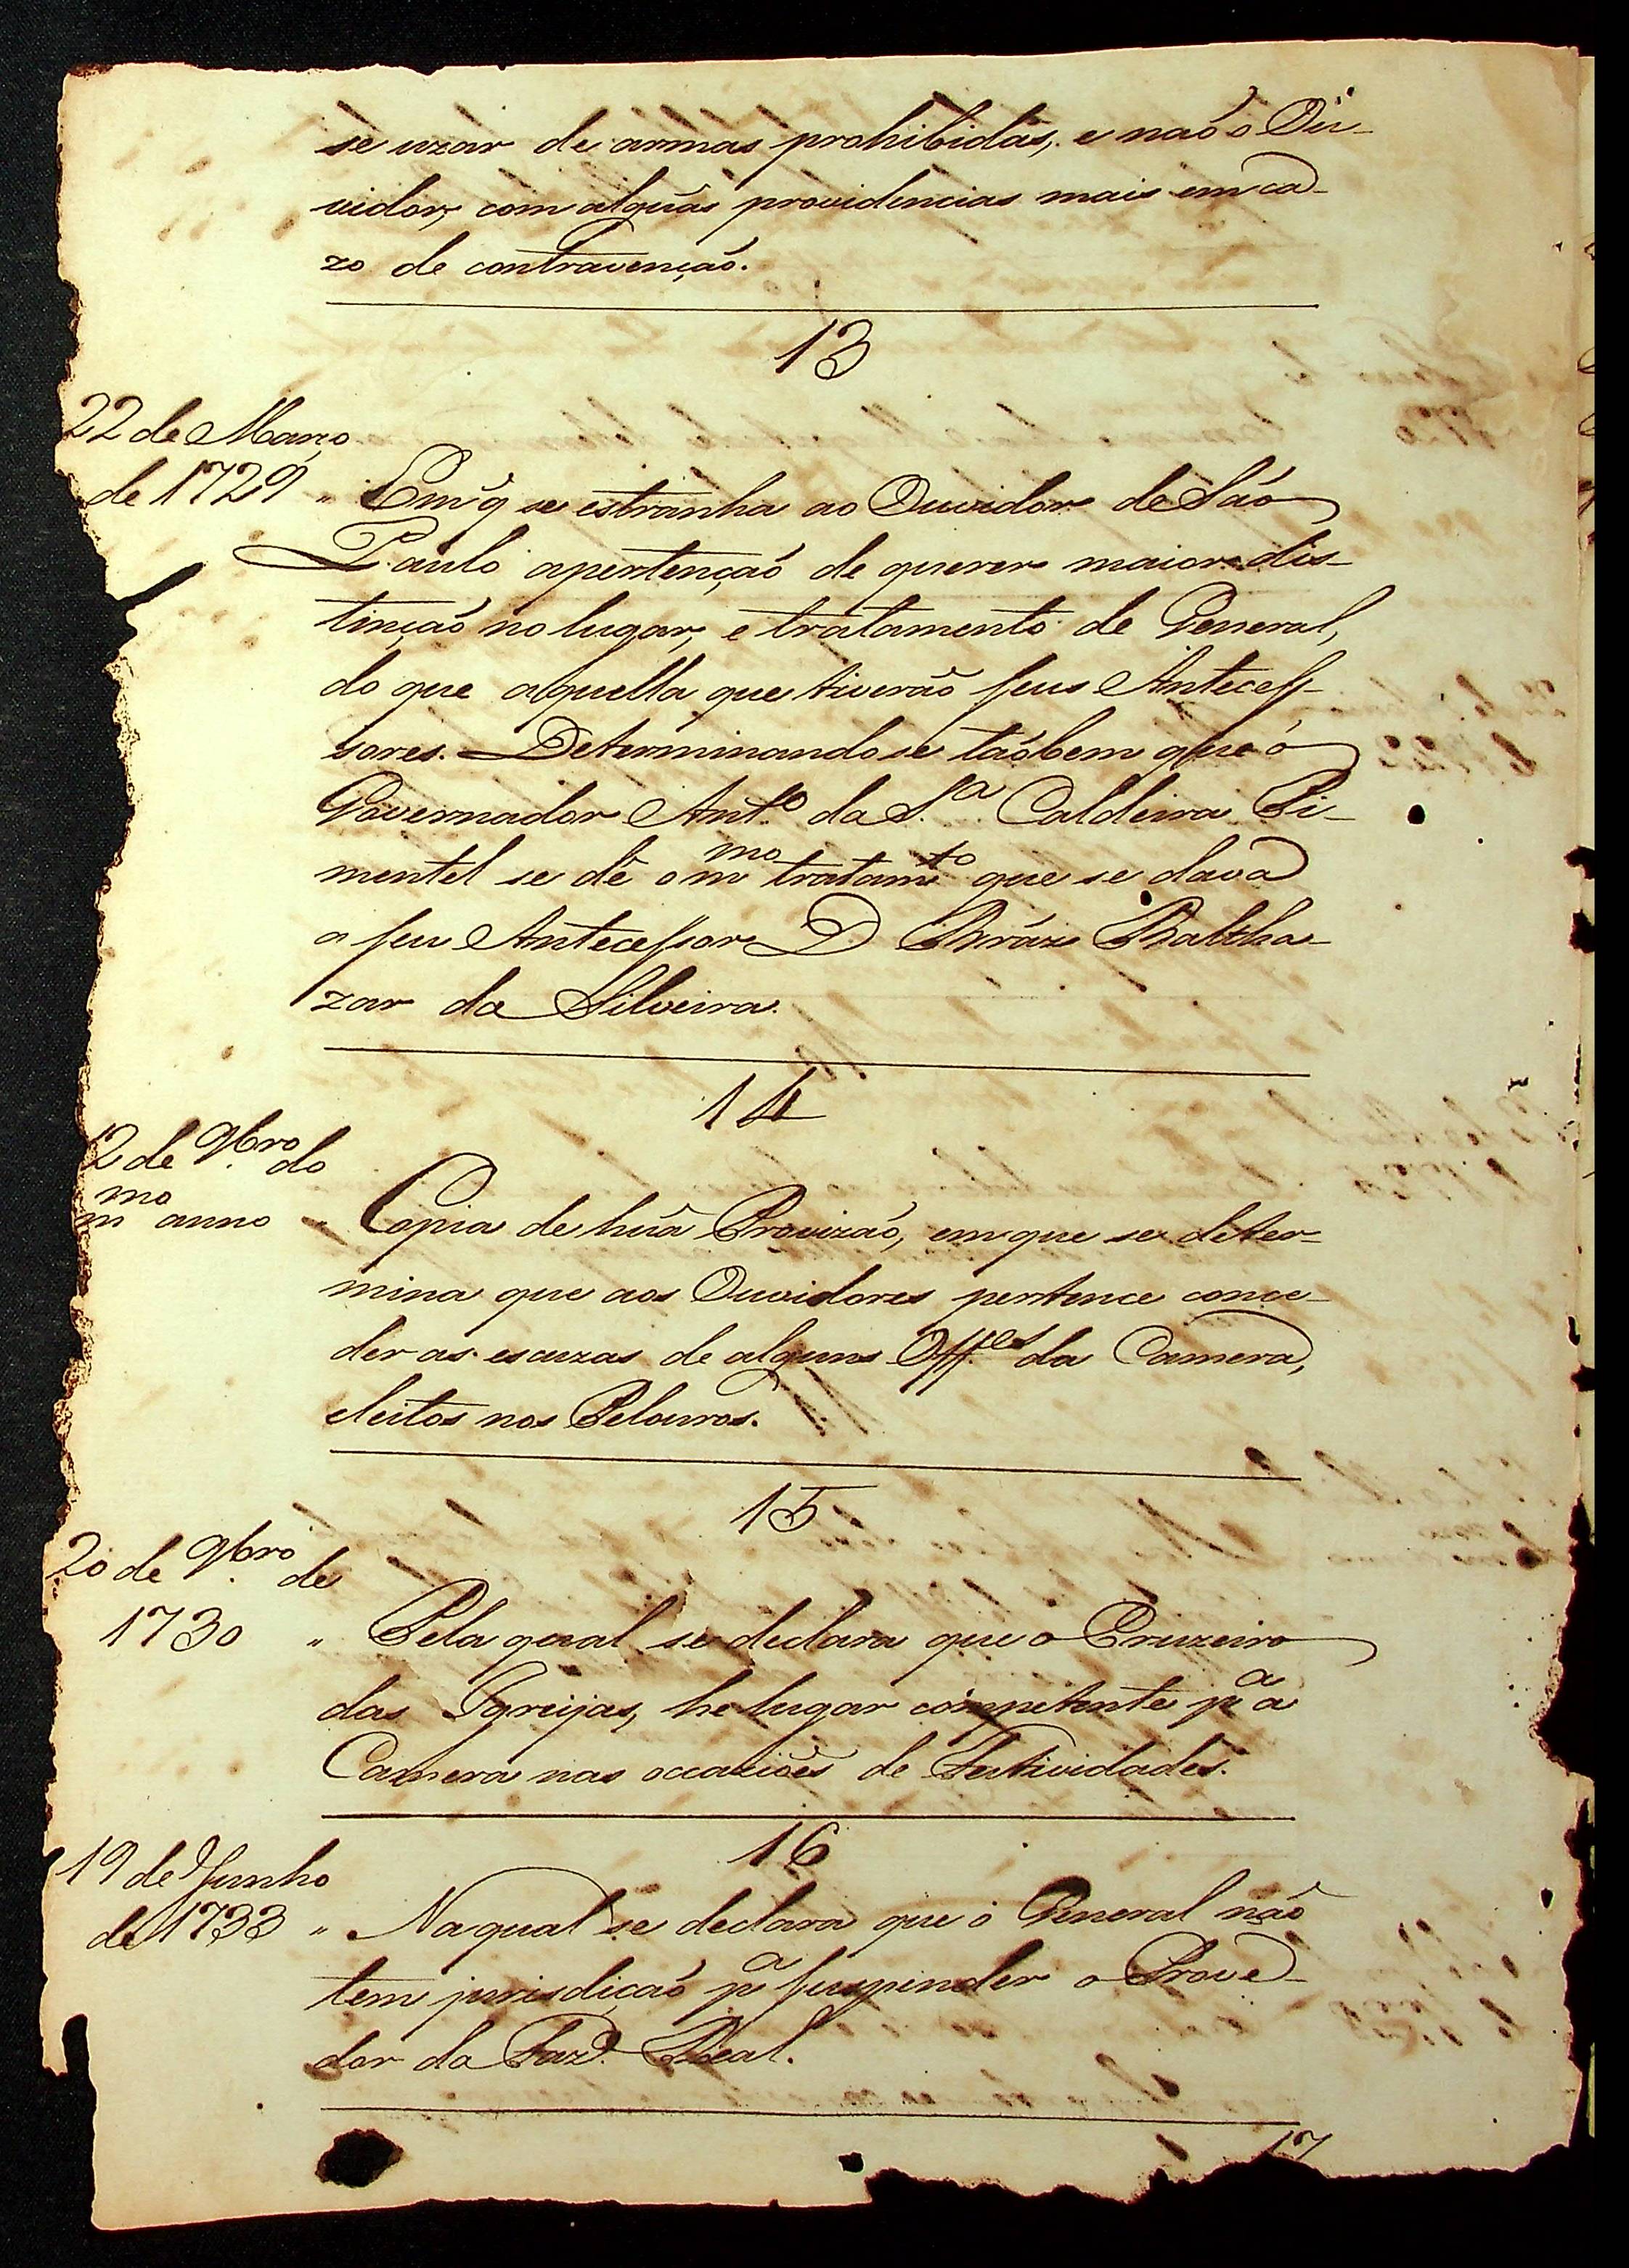 se uzar de armas prohibidas, e naõ o Ou-
vidor, com algũas providencias mais em ca-
zo de contravençaõ.
13
22 de Março
de 1729 " Em q̃ se estranha ao Ouvidor de Saõ
Paulo apertençaõ de querer maior dis-
tinçaõ no lugar, e tratamento de General,
do que aquella que tiveraõ seus Anteces-
sores. Determinandose taõbem que o
Governador Ant.º da S.ª Caldeira Pi-
mentel se dê o m.mo tratam.to que se dava
a seu Antecessor D Bráz Baltha-
zar da Silveira.
14
12 de 9bro do
m.mo anno " Copia de hũa Provizaõ, em que se deter-
mina que aos Ouvidores pertence conce-
der as escuzas de alguns Off.es da Camera,
eleitos nos Pelouros.
15
20 de 9bro de
1730 " Pela qual se declara que o Cruzeiro
das Igreijas, he lugar competente p.ª a
Camera nas occaziões de Festividades.
16
19 de Junho
de 1733 " Na qual se declara que o General naõ
tem jurisdicaõ p.ª suspender o Prove-
dor da Faz.da Real.
17